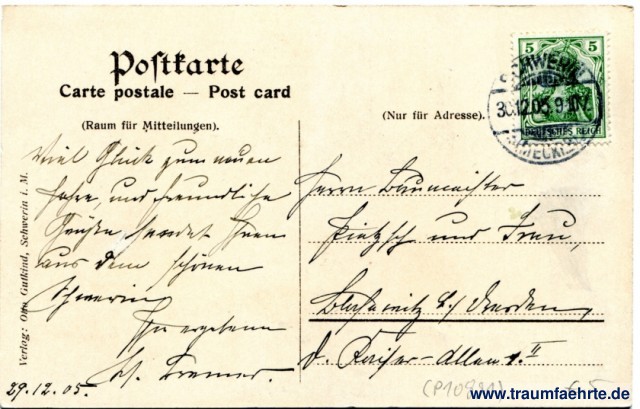 Postkarte
Carte postale — Post card
(Raum für Mitteilungen).
(Nur für Adresse).
5 5
DEUTSCHES REICH
SCHWERIN
30.12.05. 9-10V.
(MECKLB.)
Viel Glück zum neuen
Jahre, und freundliche
Grüße sendet Ihnen
aus dem schönen
Schwerin
Ihr ergebener
Herrn Baumeister
Pietzsch und Frau,
Blasewitz b/ Dresden
d. Kaiser-Allee 1. II
29.12.05.
Verlag: Otto Gutkind, Schwerin i. M.
(P10981)
www.traumfaehrte.de